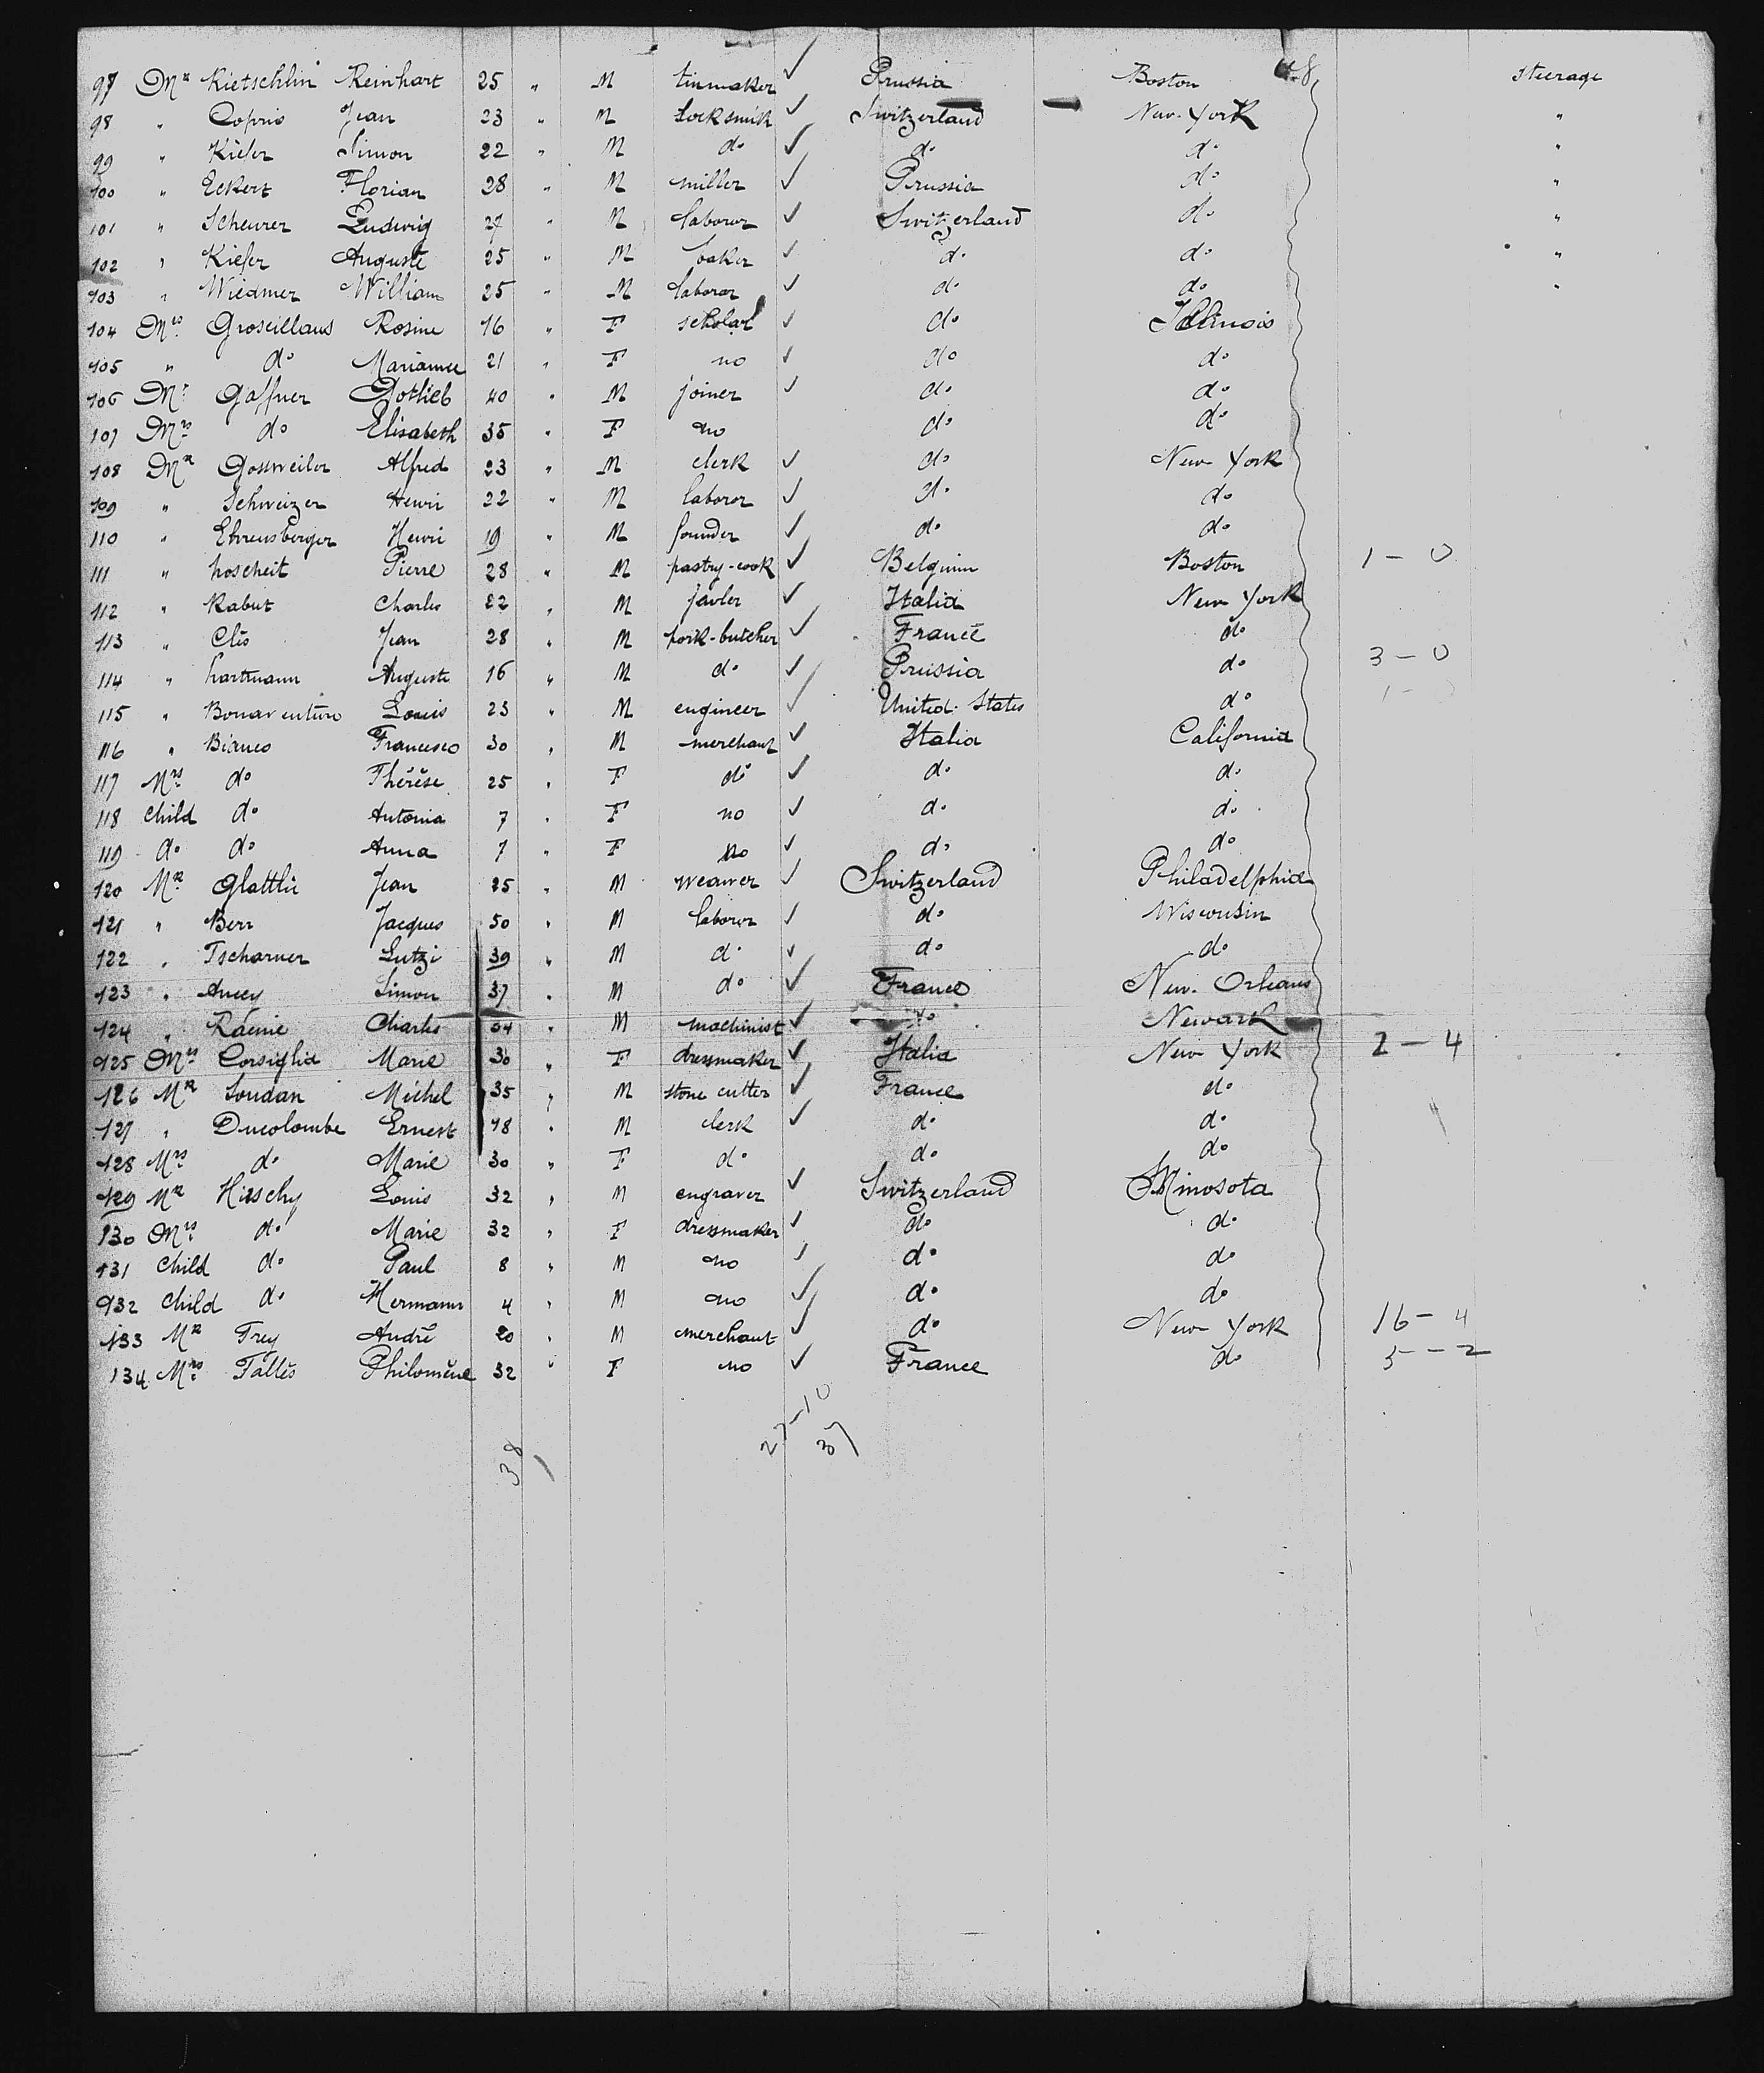 97 Mr Kietschlin Reinhart 25 " M tinmaker ✓ Prussia Boston Steerage
98 " Copris Jean 23 " M Locksmith ✓ Switzerland New-York "
99 " Kiefer Simon 22 " M do ✓ do do "
100 " Eckert Florian 28 " M miller ✓ Prussia do "
101 " Scheurer Ludwig 27 " M laboror ✓ Switzerland do "
102 " Kiefer Auguste 25 " M baker ✓ do do "
103 " Wiedmer William 25 " M laboror ✓ do do "
104 Mrs Groseillans Rosine 16 " F scholar ✓ do Illinois
105 " do Marianne 21 " F no ✓ do do
106 Mr Gaffner Gottlieb 40 " M joiner ✓ do do
107 Mrs do Elisabeth 35 " F no do do
108 Mr Gossweiler Alfred 23 " M clerk ✓ do New York
109 " Schweizer Henri 22 " M laboror ✓ do do
110 " Ehrensberger Henri 19 " M founder ✓ do do
111 " hoscheit Pierre 28 " M pastry-cook ✓ Belgium Boston 1 - 0
112 " Rabut Charles 22 " M javler ✓ Italia New York
113 " Clès Jean 28 " M pork-butcher ✓ France do
114 " hartmann Auguste 16 " M do ✓ Prussia do 3 - 0
115 " Bonaventure Louis 23 " M engineer ✓ United States do
116 " Bianco Francesco 30 " M merchant ✓ Italia California
117 Mrs do Thérèse 25 " F do ✓ do do
118 child do Antonia 7 " F no ✓ do do
119 do do Anna 1 " F no ✓ do do
120 Mr Glattli Jean 25 " M weawer ✓ Switzerland Philadelphia
121 " Berr Jacques 50 " M laboror ✓ do Wisconsin
122 " Tscharner Lutzi 39 " M do ✓ do do
123 " Ancey Simon 37 " M do ✓ France New-Orleans
124 " Racine Charles 34 " M machinist ✓ do Newark
125 Mrs Corsiglia Marie 30 " F dressmaker ✓ Italia New York 2 - 4
126 Mr Soudan Michel 35 " M stone cutter ✓ France do
127 " Ducolombe Ernest 48 " M clerk ✓ do do
128 Mrs do Marie 30 " F do do do
129 Mr Hirschy Louis 32 " M engraver ✓ Switzerland Minosota
130 Mrs do Marie 32 " F dressmaker ✓ do do
131 child do Paul 8 " M no ✓ do do
132 child do Hermann 4 " M no ✓ do do
133 Mr Frey André 20 " M merchant ✓ do New York 16 - 4
134 Mrs Tallès Philomène 32 " F no ✓ France do 5 - 2
27-10
38 37